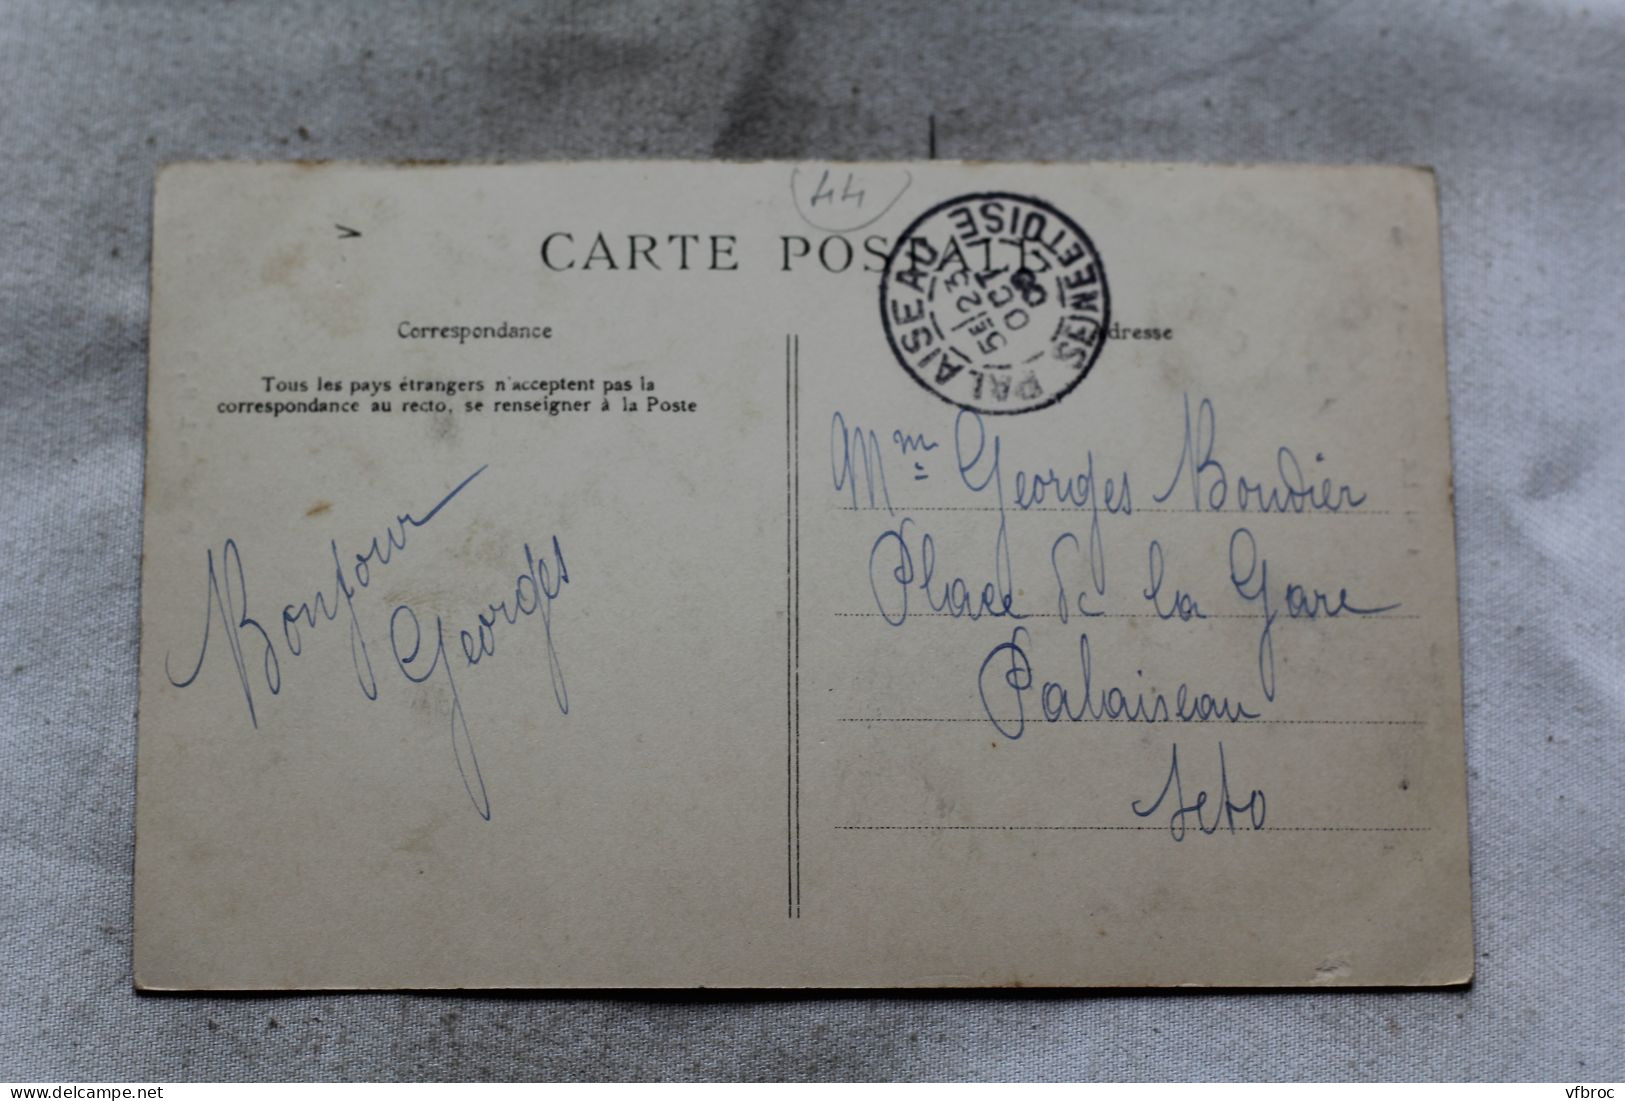 (44)
CARTE POSTALE
PALAISEAU SEINE ET OISE
5E 23
OCT
08
Correspondance
Adresse
Tous les pays étrangers n'acceptent pas la
correspondance au recto, se renseigner à la Poste
Bonjour
Georges
Mme Georges Boudier
Place de la Gare
Palaiseau
Seto
delcampe.net
vfbroc